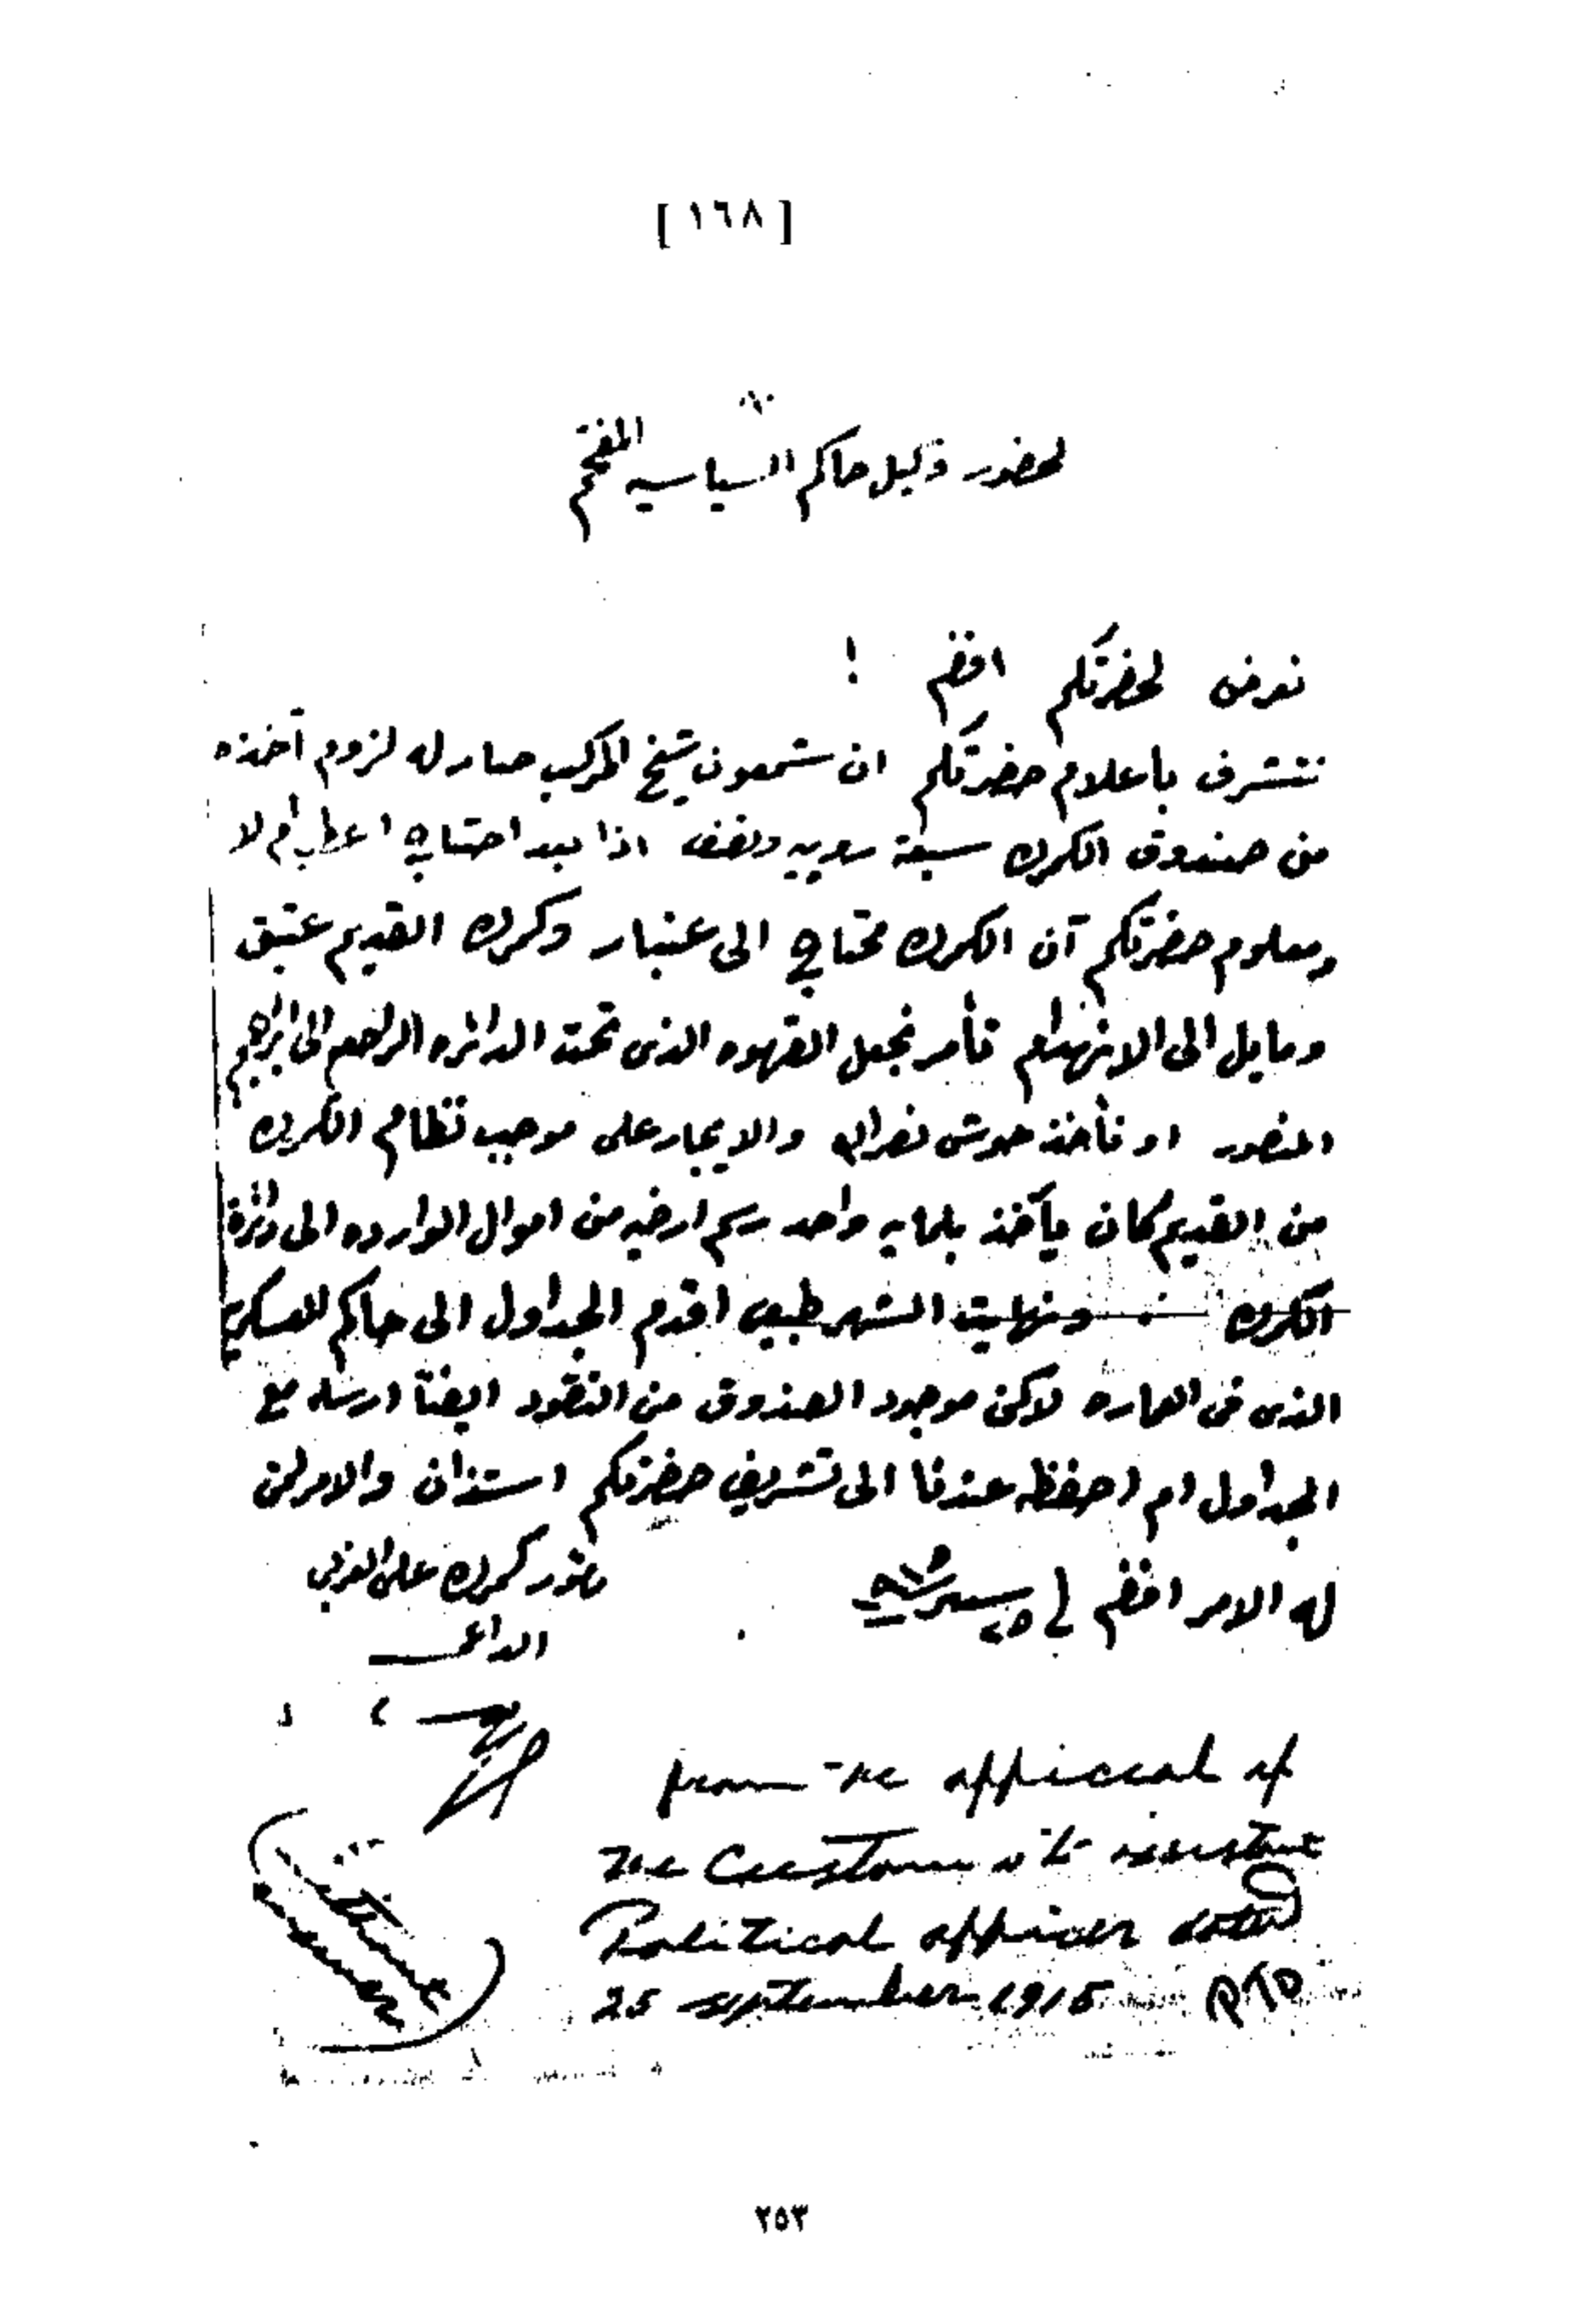 [ ١٦٨ ]
لحضور وكيل حاكم السياسيه المفخم
نعرض لحضرتكم افندم !
نتشرف باعلام حضرتكم ان شمعون شيخ المركب صار له لزوم آخذه
من صندوق الكمرك سبعة روبيه ونصف اذا بعد احتاج اعطيه ام لا
ومعلوم حضرتكم آن الكمرك محتاج الى عنبار وكمرك القديم عتيق
ومايل الى الانهدام تأمر نجعل القهوه الذى تحت الدائره الراجع الى ابراهيم
المنصور او نأخذ حوش نصرالله والايجار على موجب نظام الكمرك
من القديم كان يآخذ بلمايه واحد رسم ارضيه من اموال الوارده الى دائرة
الكمرك ونهايت الشهر طبعى اقدم الجداول الى حاكم العسكرى
الذى فى العماره لاكن موجود الصندوق من النقود ايضاً ارسله مع
الجداول ام احفظه عندنا الى تشريف حضرتكم استذان والامر لمن
له الامر افندم فى ٢٥
مأمور كمرك على الغربى
الداعى
from the official of
the Customs to assistant
Political officer
25 september 1915
٢٥٣